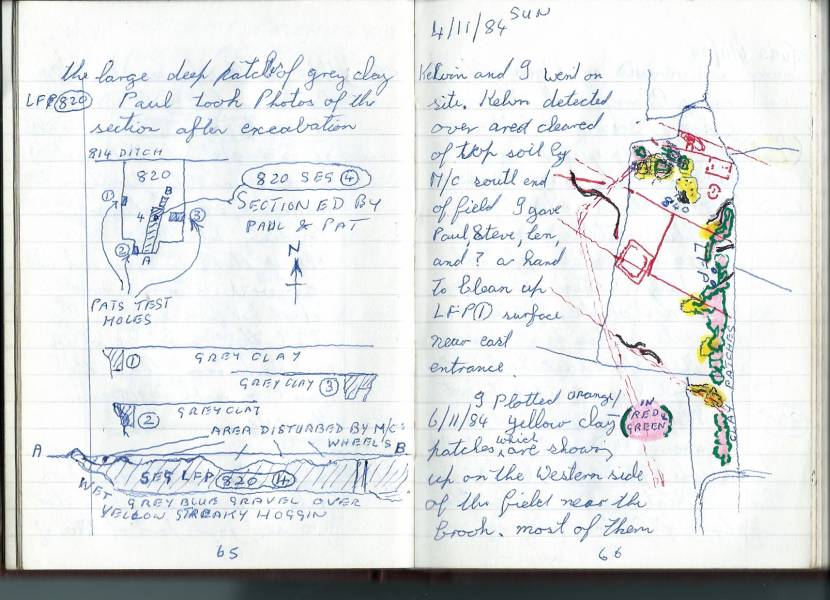 the large deep patch of grey clay
LFP 820 Paul took Photos of the
section after excabation
814 DITCH
820
B
1
4
3
2
A
820 SEG 4
SECTIONED BY
PAUL & PAT
N
PATS TEST
HOLES
1 GREY CLAY
GREY CLAY 3
2 GREY CLAY
AREA DISTURBED BY M/C
WHEELS
A B
SEG LFP 820 4
WET GREY BLUE GRAVEL OVER
YELLOW STREAKY HOGGIN
65
4/11/84 SUN
Kelvin and I went on
site. Kelvin detected
over area cleared
of top soil by
M/C south end
of field I gave
Paul, Steve, Len,
and ? a hand
to clean up
LFP 1 surface
near east
entrance.
I Plotted orange/
6/11/84 yellow clay
patches which are shown
up on the Western side
of the field near the
brook. most of them
840
LFP
CLAY PATCHES
IN
RED &
GREEN
66